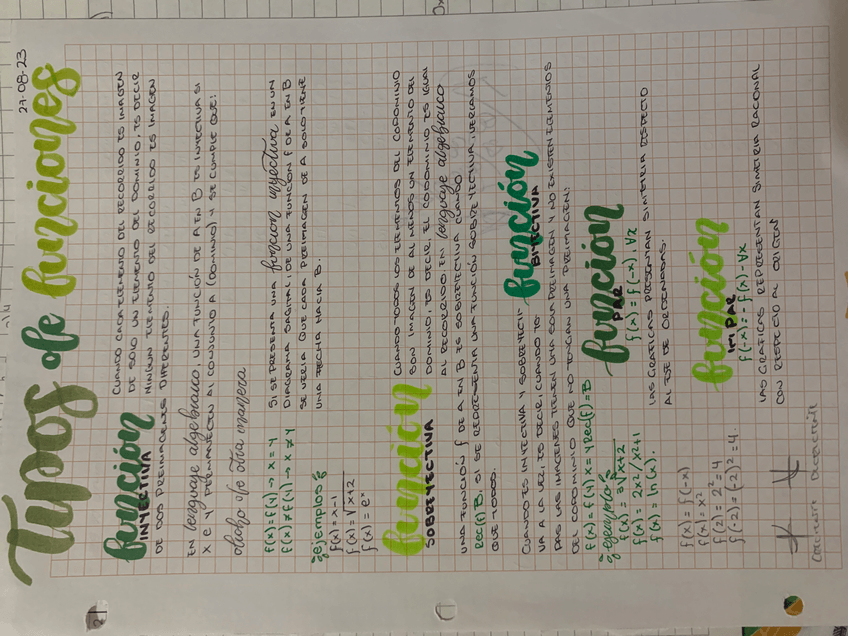 27-08-23
Tipos de funciones
función
INYECTIVA
CUANDO CADA ELEMENTO DEL RECORRIDO ES IMAGEN
DE SOLO UN ELEMENTO DEL DOMINIO, ES DECIR
NINGUN ELEMENTO DEL RECORRIDO ES IMAGEN
DE DOS PREIMAGENES DIFERENTES.
EN lenguaje algebraico, UNA FUNCIÓN DE A EN B ES INYECTIVA SI
X E Y PERMANECEN AL CONJUNTO A (DOMINIO) Y SE CUMPLE QUE:
dicho de otra manera
f(x) = f(y) → x = y
f(x) ≠ f(y) → x ≠ y
SI SE PRESENTA UNA función inyectiva EN UN
DIAGRAMA SAGITAL DE UNA FUNCIÓN f DE A EN B
SE VERIA QUE CADA PREIMAGEN DE A SOLO TIENE
UNA FLECHA HACIA B.
ejemplos:
f(x) = x-1
f(x) = √x+2
f(x) = eˣ
función
SOBREYECTIVA
CUANDO TODOS LOS ELEMENTOS DEL CODOMINIO
SON IMAGEN DE AL MENOS UN ELEMENTO DEL
DOMINIO, ES DECIR, EL CODOMINIO ES IGUAL
AL RECORRIDO. EN lenguaje algebraico
UNA FUNCIÓN f DE A EN B ES SOBREYECTIVA CUANDO
REC(f) B. SI SE REPRESENTA UNA FUNCIÓN SOBREYECTIVA, VERIAMOS
QUE TODOS.
función
BIYECTIVA
CUANDO ES INYECTIVA Y SOBREYECTI-
VA A LA VEZ, ES DECIR, CUANDO TO-
DAS LAS IMAGENES TIENEN UNA SOLA PREIMAGEN Y NO EXISTEN ELEMENTOS
DEL CODOMINIO QUE NO TENGAN UNA PREIMAGEN:
f(x) = f(y) x = y REC(f) = B
ejemplos:
f(x) = 3√x+2
f(x) = 2x²/x²+1
f(x) = ln(x).
función
PAR
f(x) = f(-x), ∀x
LAS GRÁFICAS PRESENTAN SIMETRIA RESPECTO
AL EJE DE ORDENADAS.
f(x) = f(-x)
f(x) = x²
f(2) = 2² = 4
f(-2) = (-2)² = 4.
función
IMPAR
f(-x) = -f(x) - ∀x
LAS GRAFICAS REPRESENTAN SIMETRIA RACIONAL
CON RESPECTO AL ORIGEN
CRECIENTE DECRECIENTE